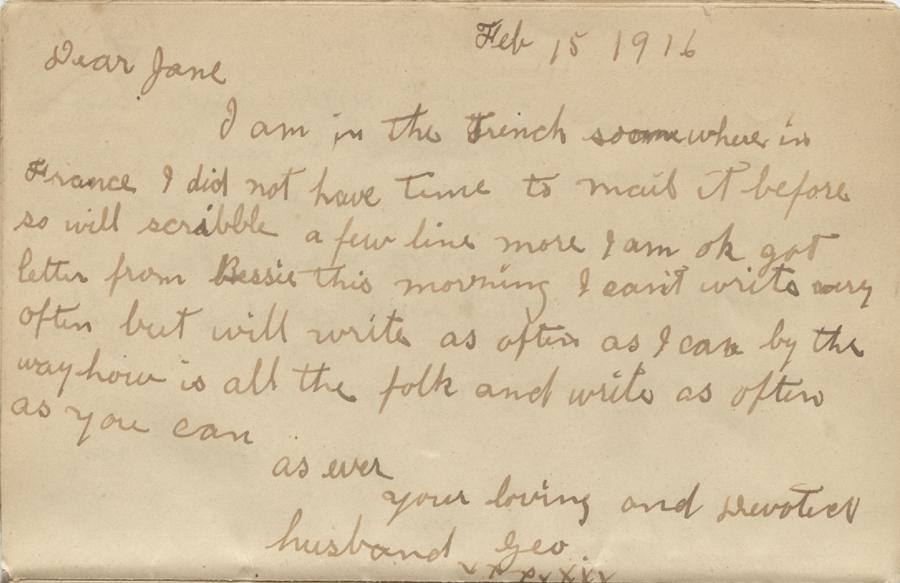 Feb 15 1916
Dear Jane
I am in the Trench somewhere in
France I did not have time to mail it before
so will scribble a few line more I am ok got
letter from Bessie this morning I can't write very
often but will write as often as I can by the
way how is all the folk and write as often
as you can
as ever
your loving and Devoted
husband Geo.